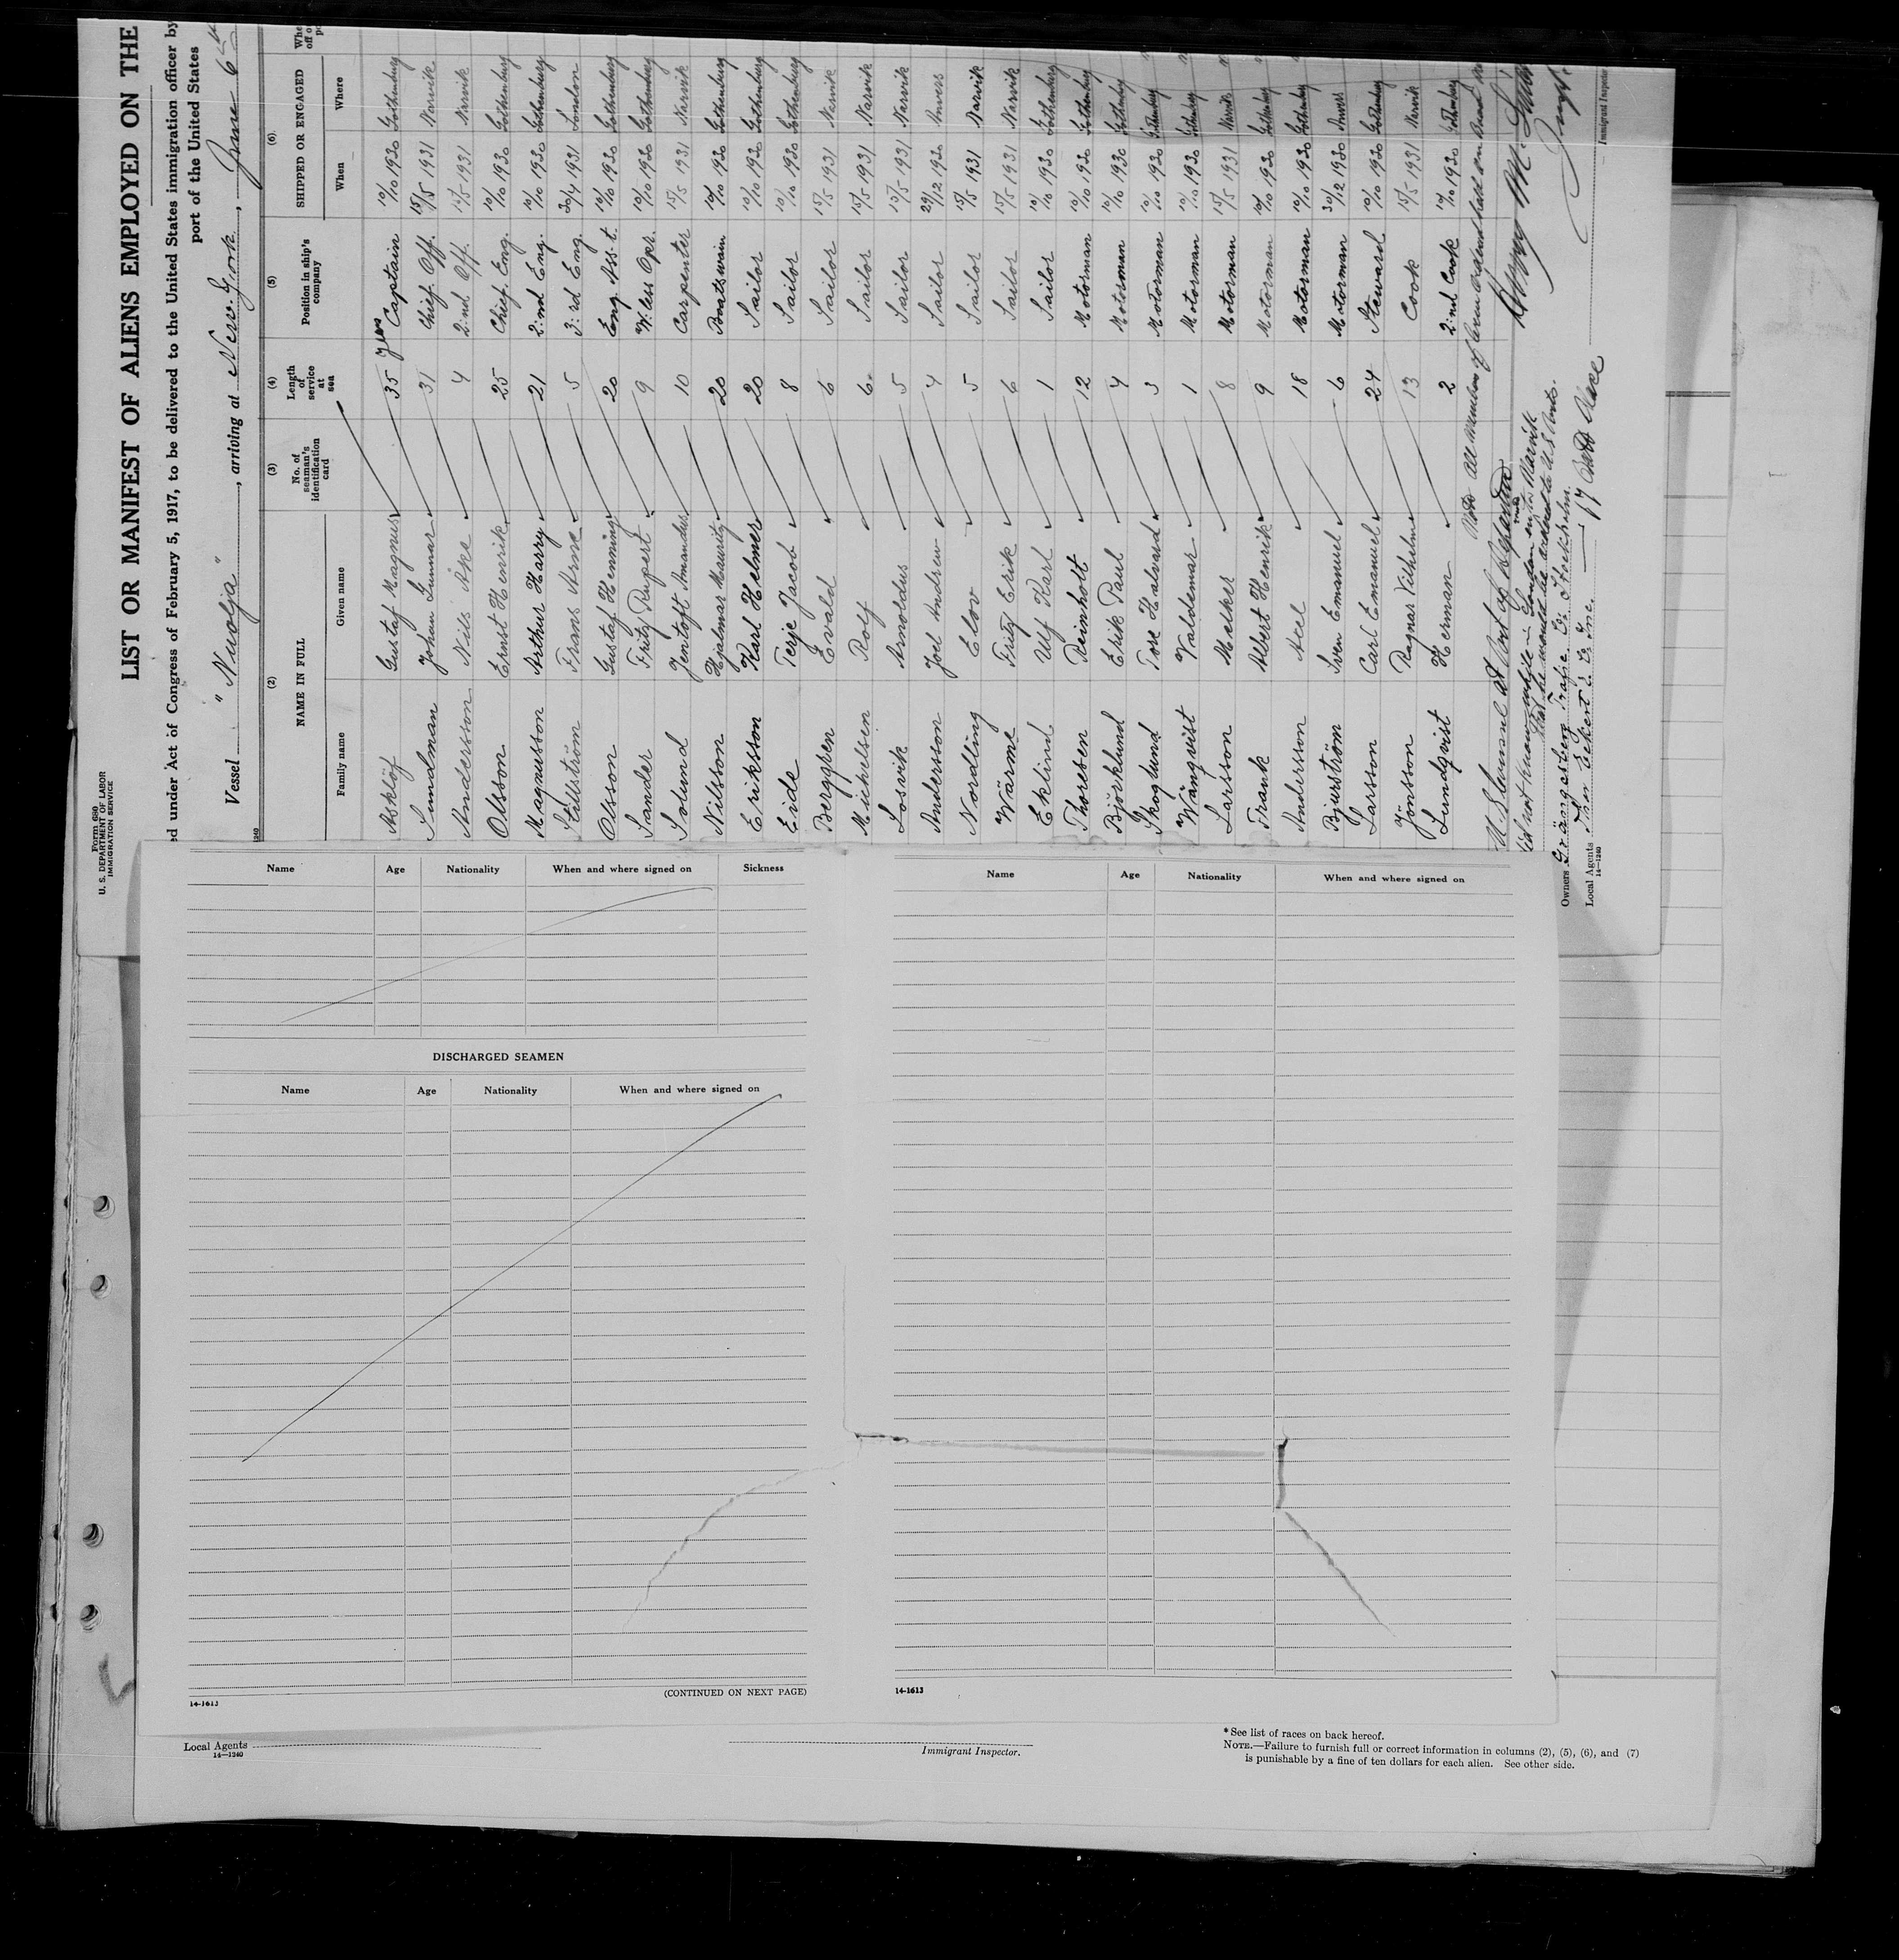 Form 680
U. S. DEPARTMENT OF LABOR
IMMIGRATION SERVICE
LIST OR MANIFEST OF ALIENS EMPLOYED ON THE
ed under Act of Congress of February 5, 1917, to be delivered to the United States immigration officer by
port of the United States
Vessel "Nuolja", arriving at New York, June 6th
(2) (3) (4) (5) (6)
NAME IN FULL No. of seaman's identification card Length of service at sea Position in ship's company SHIPPED OR ENGAGED
Family name Given name When Where
Asklöf Gustaf Magnus 35 years Captain 10/10 1930 Gothenburg
Sundman Johan Gunnar 31 Chief Off. 15/5 1931 Narvik
Andersson Nils Åke 4 2:nd Off. 15/5 1931 Narvik
Olsson Ernst Henrik 25 Chief Eng. 10/10 1930 Gothenburg
Magnusson Arthur Harry 21 2:nd Eng. 10/10 1930 Gothenburg
Stillström Frans Arne 5 3:rd Eng. 30/4 1931 London
Olsson Gustaf Henning 20 Eng. Ass:t. 10/10 1930 Gothenburg
Sander Fritz Rupert 9 W:less Opr. 10/10 1930 Gothenburg
Solund Jentoft Amandus 10 Carpenter 15/5 1931 Narvik
Nilsson Hjalmar Mauritz 20 Boatswain 10/10 1930 Gothenburg
Eriksson Karl Helmer 20 Sailor 10/10 1930 Gothenburg
Eide Terje Jacob 8 Sailor 10/10 1930 Gothenburg
Berggren Evald 6 Sailor 15/5 1931 Narvik
Michelsen Rolf 6 Sailor 15/5 1931 Narvik
Losvik Arnoldus 5 Sailor 15/5 1931 Narvik
Andersson Joel Andrew 4 Sailor 29/12 1930 Anvers
Nordling Elov 5 Sailor 15/5 1931 Narvik
Wärme Fritz Erik 6 Sailor 15/5 1931 Narvik
Eklind Ulf Karl 1 Sailor 10/10 1930 Gothenburg
Thoresen Reinholt 12 Motorman 10/10 1930 Gothenburg
Björklund Erik Paul 4 Motorman 10/10 1930 Gothenburg
Skoglund Tore Halvard 3 Motorman 10/10 1930 Gothenburg
Wångqvist Valdemar 1 Motorman 10/10 1930 Gothenburg
Larsson Melker 8 Motorman 15/5 1931 Narvik
Frank Albert Henrik 9 Motorman 10/10 1930 Gothenburg
Andersson Axel 18 Motorman 10/10 1930 Gothenburg
Bjurström Sven Emanuel 6 Motorman 30/12 1930 Anvers
Larsson Carl Emanuel 24 Steward 10/10 1930 Gothenburg
Jönsson Ragnar Vilhelm 13 Cook 15/5 1931 Narvik
Lundqvist Herman 2 2:nd Cook 10/10 1930 Gothenburg
Owners Grängesberg Trafic Co. Stockholm.
Local Agents Thor Eckert & Co Inc.
14—1240
Immigrant Inspector
Name Age Nationality When and where signed on Sickness
DISCHARGED SEAMEN
Name Age Nationality When and where signed on
14-1613
(CONTINUED ON NEXT PAGE)
Name Age Nationality When and where signed on
14-1613
Local Agents
14—1240
Immigrant Inspector.
* See list of races on back hereof.
NOTE.—Failure to furnish full or correct information in columns (2), (5), (6), and (7)
is punishable by a fine of ten dollars for each alien. See other side.